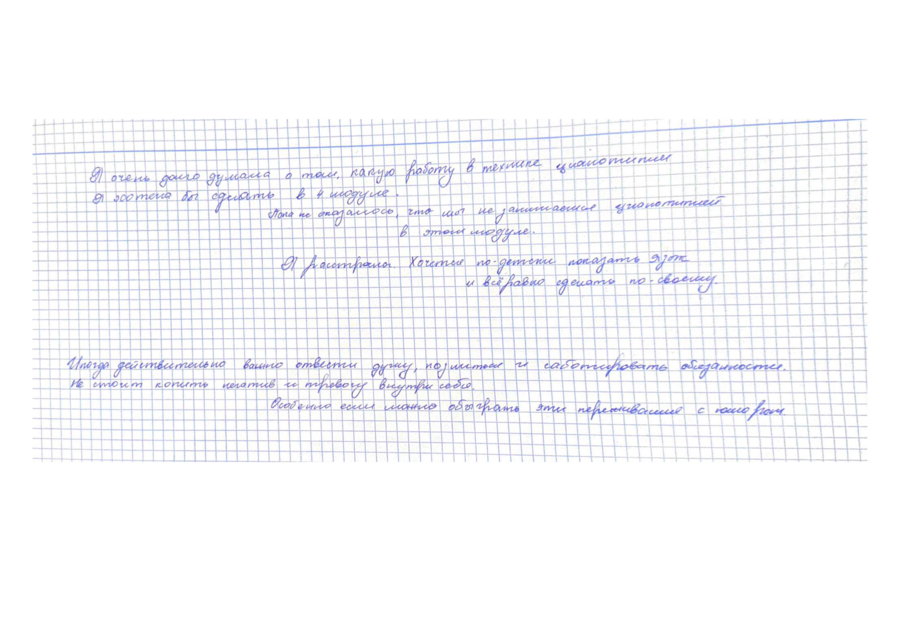 Я очень долго думала о том, какую работу в технике цианотипии
я хотела бы сделать в 4 модуле.
Пока не оказалось, что мы не занимаемся цианотипией
в этом модуле.
Я расстроена. Хочется по-детски показать язык
и всё равно сделать по-своему.
Иногда действительно важно отвести душу, позлиться и саботировать обязанности.
Не стоит копить негатив и тревогу внутри себя.
Особенно если можно обыграть эти переживания с юмором